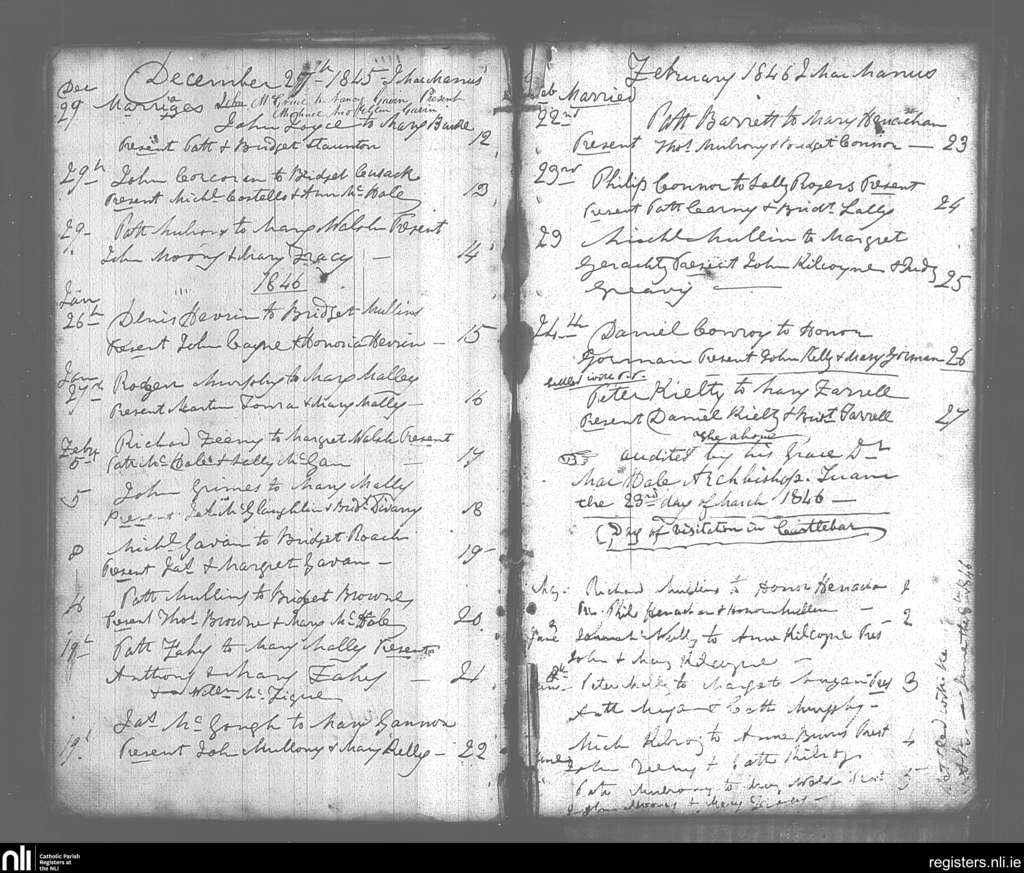 December 29th 1845 J MacManus
Dec
29 Marriages
Present
John Joyce to Mary Burke
Present Patt & Bridget Staunton 12
29th John Corcoran to Bridget Cusack
Present Michl Costello & Ann McHale 13
29 Patt Mulrony to Mary Walsh Present
John Moony & Mary Tracy — 14
1846
Jan
26th Denis Devrin to Bridget Mullins
Present John Coyne & Honoria Devrin — 15
Jan
27th Rodger Murphy to Mary Malley
Present Martin & Mary Mally — 16
Feby Richard Feeny to Margret Walsh Present
5th Patt McHale & Sally McGan — 17
5 John Grimes to Mary Mally
Present McGloughlin & Bridt 18
8 Michl Gavan to Bridget Roach
Present Jas & Margret Gavan — 19
Patt Mullins to Bridget Browne
Present Thos Browne & Mary McHale 20
19th Patt Fahy to Mary Mally Present
Anthony & Mary Fahy — 21
& McTigue
19th Jas McGough to Mary Gannon
Present John Mullony & Mary Kelly — 22
February 1846 J MacManus
Feb Married
22nd Patt Barrett to Mary Henaghan
Present Thos Mulrony & Bridget Connor — 23
23rd Philip Connor to Sally Rogers Present
Present Patt Carny & Bridt Lally 24
23 Michl Mullin to Margret
Geraghty Present John Kilcoyne & Judy
Greavy — 25
24th Daniel Conroy to Honor
Gorman Present John Kelly & Mary Gorman 26
Peter Kielty to Mary Farrell
Present Daniel Kielty & Bridt Farrell 27
The above
audited by his Grace Dr
MacHale Archbishop Tuam
the 23rd day of March 1846 —
(Day of Visitation in Castlebar)
Richard Mullins to Honor Henaghan 1
Phil Henaghan & Honor Mullin —
June to Anne Kilcoyne Pres 2
John & Mary Kilcoyne —
Peter to Margret Pres 3
& Cath Murphy —
Mich Kilroy to Anne Burns Prest 4
John Feeny & Cath Kilroy
Patt Mulrony to Mary Walsh Prest 5
John Moony & Mary
Settled with the
nli
Catholic Parish
Registers at
the NLI
registers.nli.ie